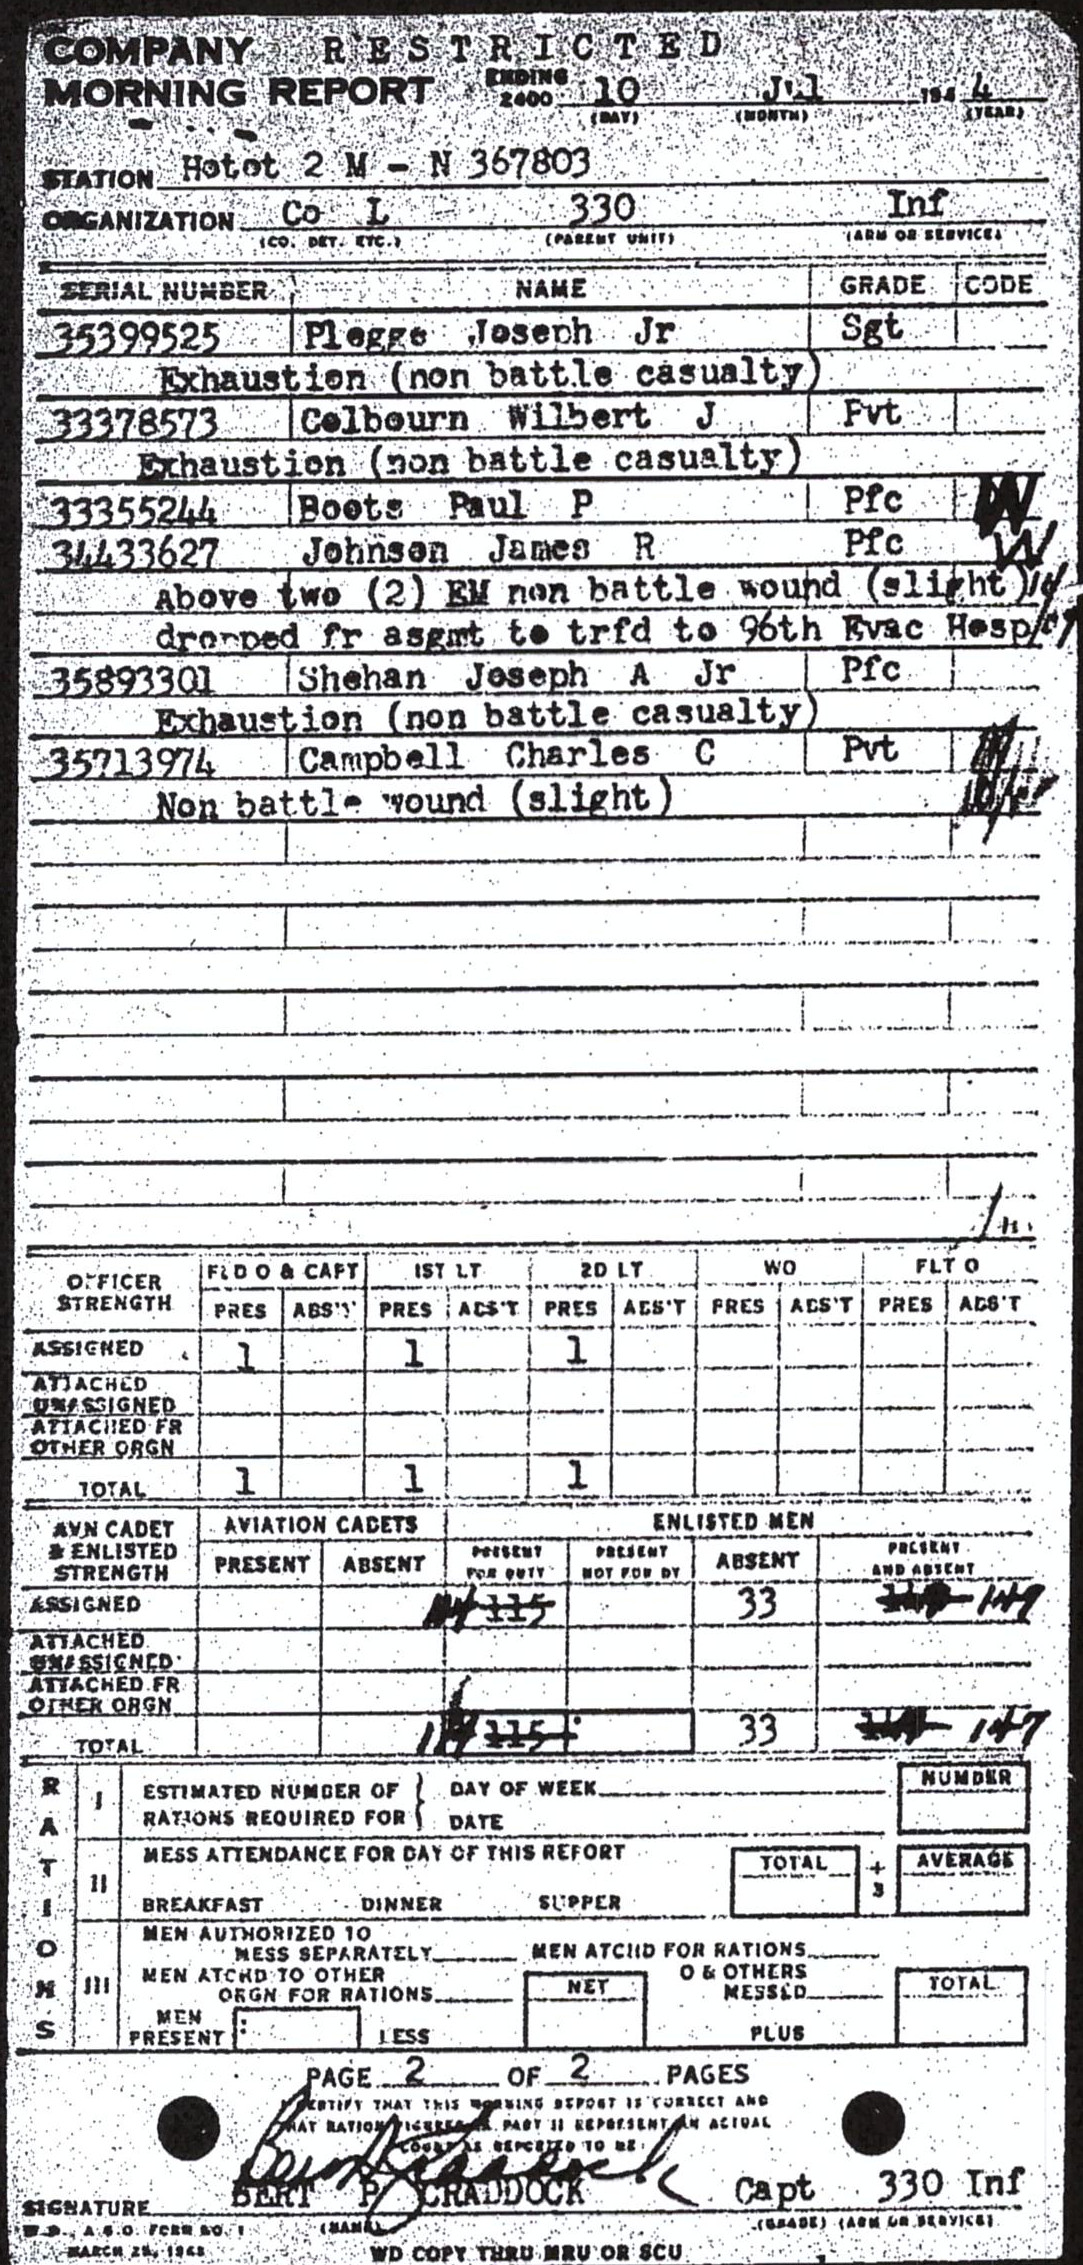 COMPANY RESTRICTED
MORNING REPORT ENDING 2400 10 Jul 1944
(DAY) (MONTH) (YEAR)
STATION Hotot 2 M - N 367803
ORGANIZATION Co L 330 Inf
(CO. DET. ETC.) (PARENT UNIT) (ARM OR SERVICE)
SERIAL NUMBER NAME GRADE CODE
35399525 Plegge Joseph Jr Sgt
Exhaustion (non battle casualty)
33378573 Colbourn Wilbert J Pvt
Exhaustion (non battle casualty)
33355244 Boots Paul P Pfc W
34433627 Johnson James R Pfc W
Above two (2) EM non battle wound (slight)
dropped fr asgmt to trfd to 96th Evac Hosp
35893301 Shehan Joseph A Jr Pfc
Exhaustion (non battle casualty)
35713974 Campbell Charles C Pvt
Non battle wound (slight)
OFFICER STRENGTH FLD O & CAPT 1ST LT 2D LT WO FLT O
PRES ABS'T PRES ABS'T PRES ABS'T PRES ABS'T PRES ABS'T
ASSIGNED 1 1 1
ATTACHED UNASSIGNED
ATTACHED FR OTHER ORGN
TOTAL 1 1 1
AVN CADET & ENLISTED STRENGTH AVIATION CADETS ENLISTED MEN
PRESENT ABSENT PRESENT FOR DUTY PRESENT NOT FOR DY ABSENT PRESENT AND ABSENT
ASSIGNED 114 115 33 147
ATTACHED UNASSIGNED
ATTACHED FR OTHER ORGN
TOTAL 114 115 33 147
RATIONS
I ESTIMATED NUMBER OF RATIONS REQUIRED FOR DAY OF WEEK NUMBER
DATE
II MESS ATTENDANCE FOR DAY OF THIS REPORT TOTAL ÷ 3 AVERAGE
BREAKFAST DINNER SUPPER
III MEN AUTHORIZED TO MESS SEPARATELY MEN ATCHD FOR RATIONS
MEN ATCHD TO OTHER ORGN FOR RATIONS NET O & OTHERS MESSED TOTAL
MEN PRESENT LESS PLUS
PAGE 2 OF 2 PAGES
I CERTIFY THAT THIS MORNING REPORT IS CORRECT AND
THAT RATION FIGURES IN PART II REPRESENT AN ACTUAL
COUNT AS REPORTED TO ME
SIGNATURE BERT P CRADDOCK Capt 330 Inf
(NAME) (GRADE) (ARM OR SERVICE)
W.D., A.G.O. FORM NO. 1
MARCH 25, 1943
WD COPY THRU MRU OR SCU